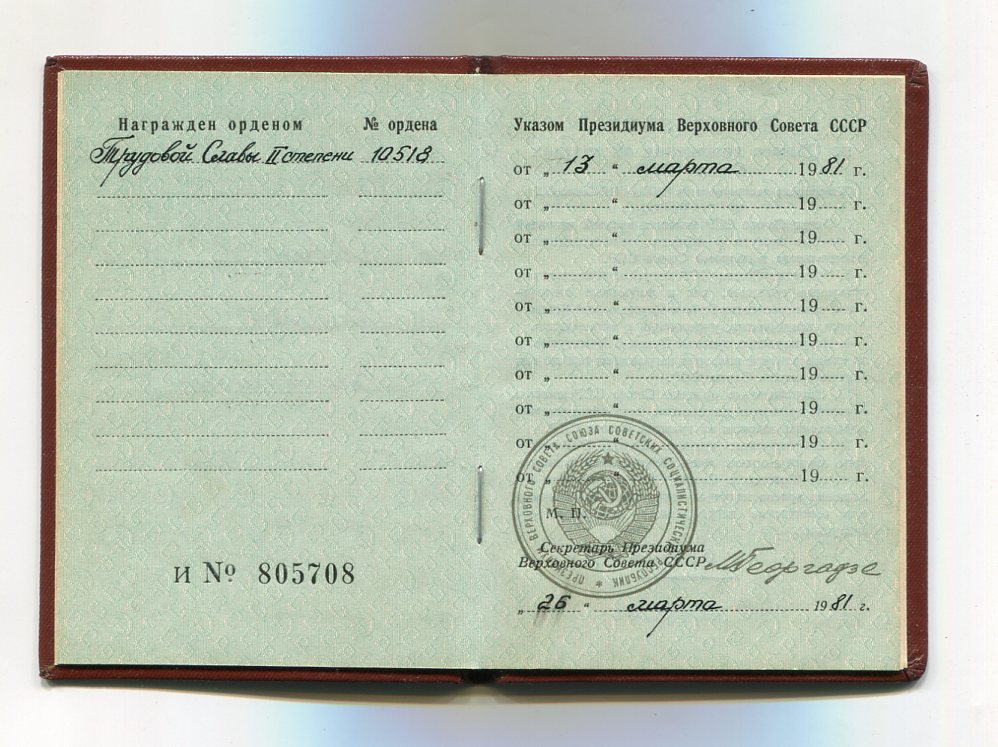 Награжден орденом № ордена
Трудовой Славы II степени 10518
И № 805708
Указом Президиума Верховного Совета СССР
от „ 13 “ марта 1981 г.
от „ “ 19 г.
от „ “ 19 г.
от „ “ 19 г.
от „ “ 19 г.
от „ “ 19 г.
от „ “ 19 г.
от „ “ 19 г.
от „ “ 19 г.
от „ “ 19 г.
ПРЕЗИДИУМ ВЕРХОВНОГО СОВЕТА СОЮЗА СОВЕТСКИХ СОЦИАЛИСТИЧЕСКИХ РЕСПУБЛИК
М. П.
Секретарь Президиума
Верховного Совета СССР МГеоргадзе
„ 26 “ марта 1981 г.